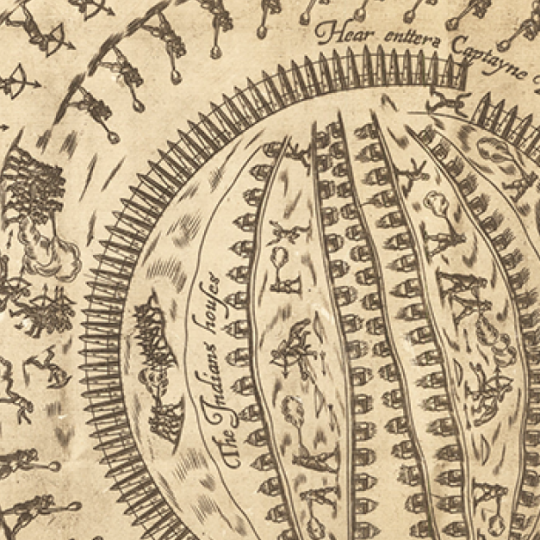 Hear enttera Captayne
The Indians houses